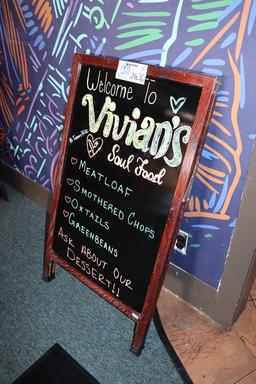 Welcome To
Vivian's
Soul Food
Meatloaf
Smothered Chops
Oxtails
Greenbeans
Ask About Our
Dessert!!